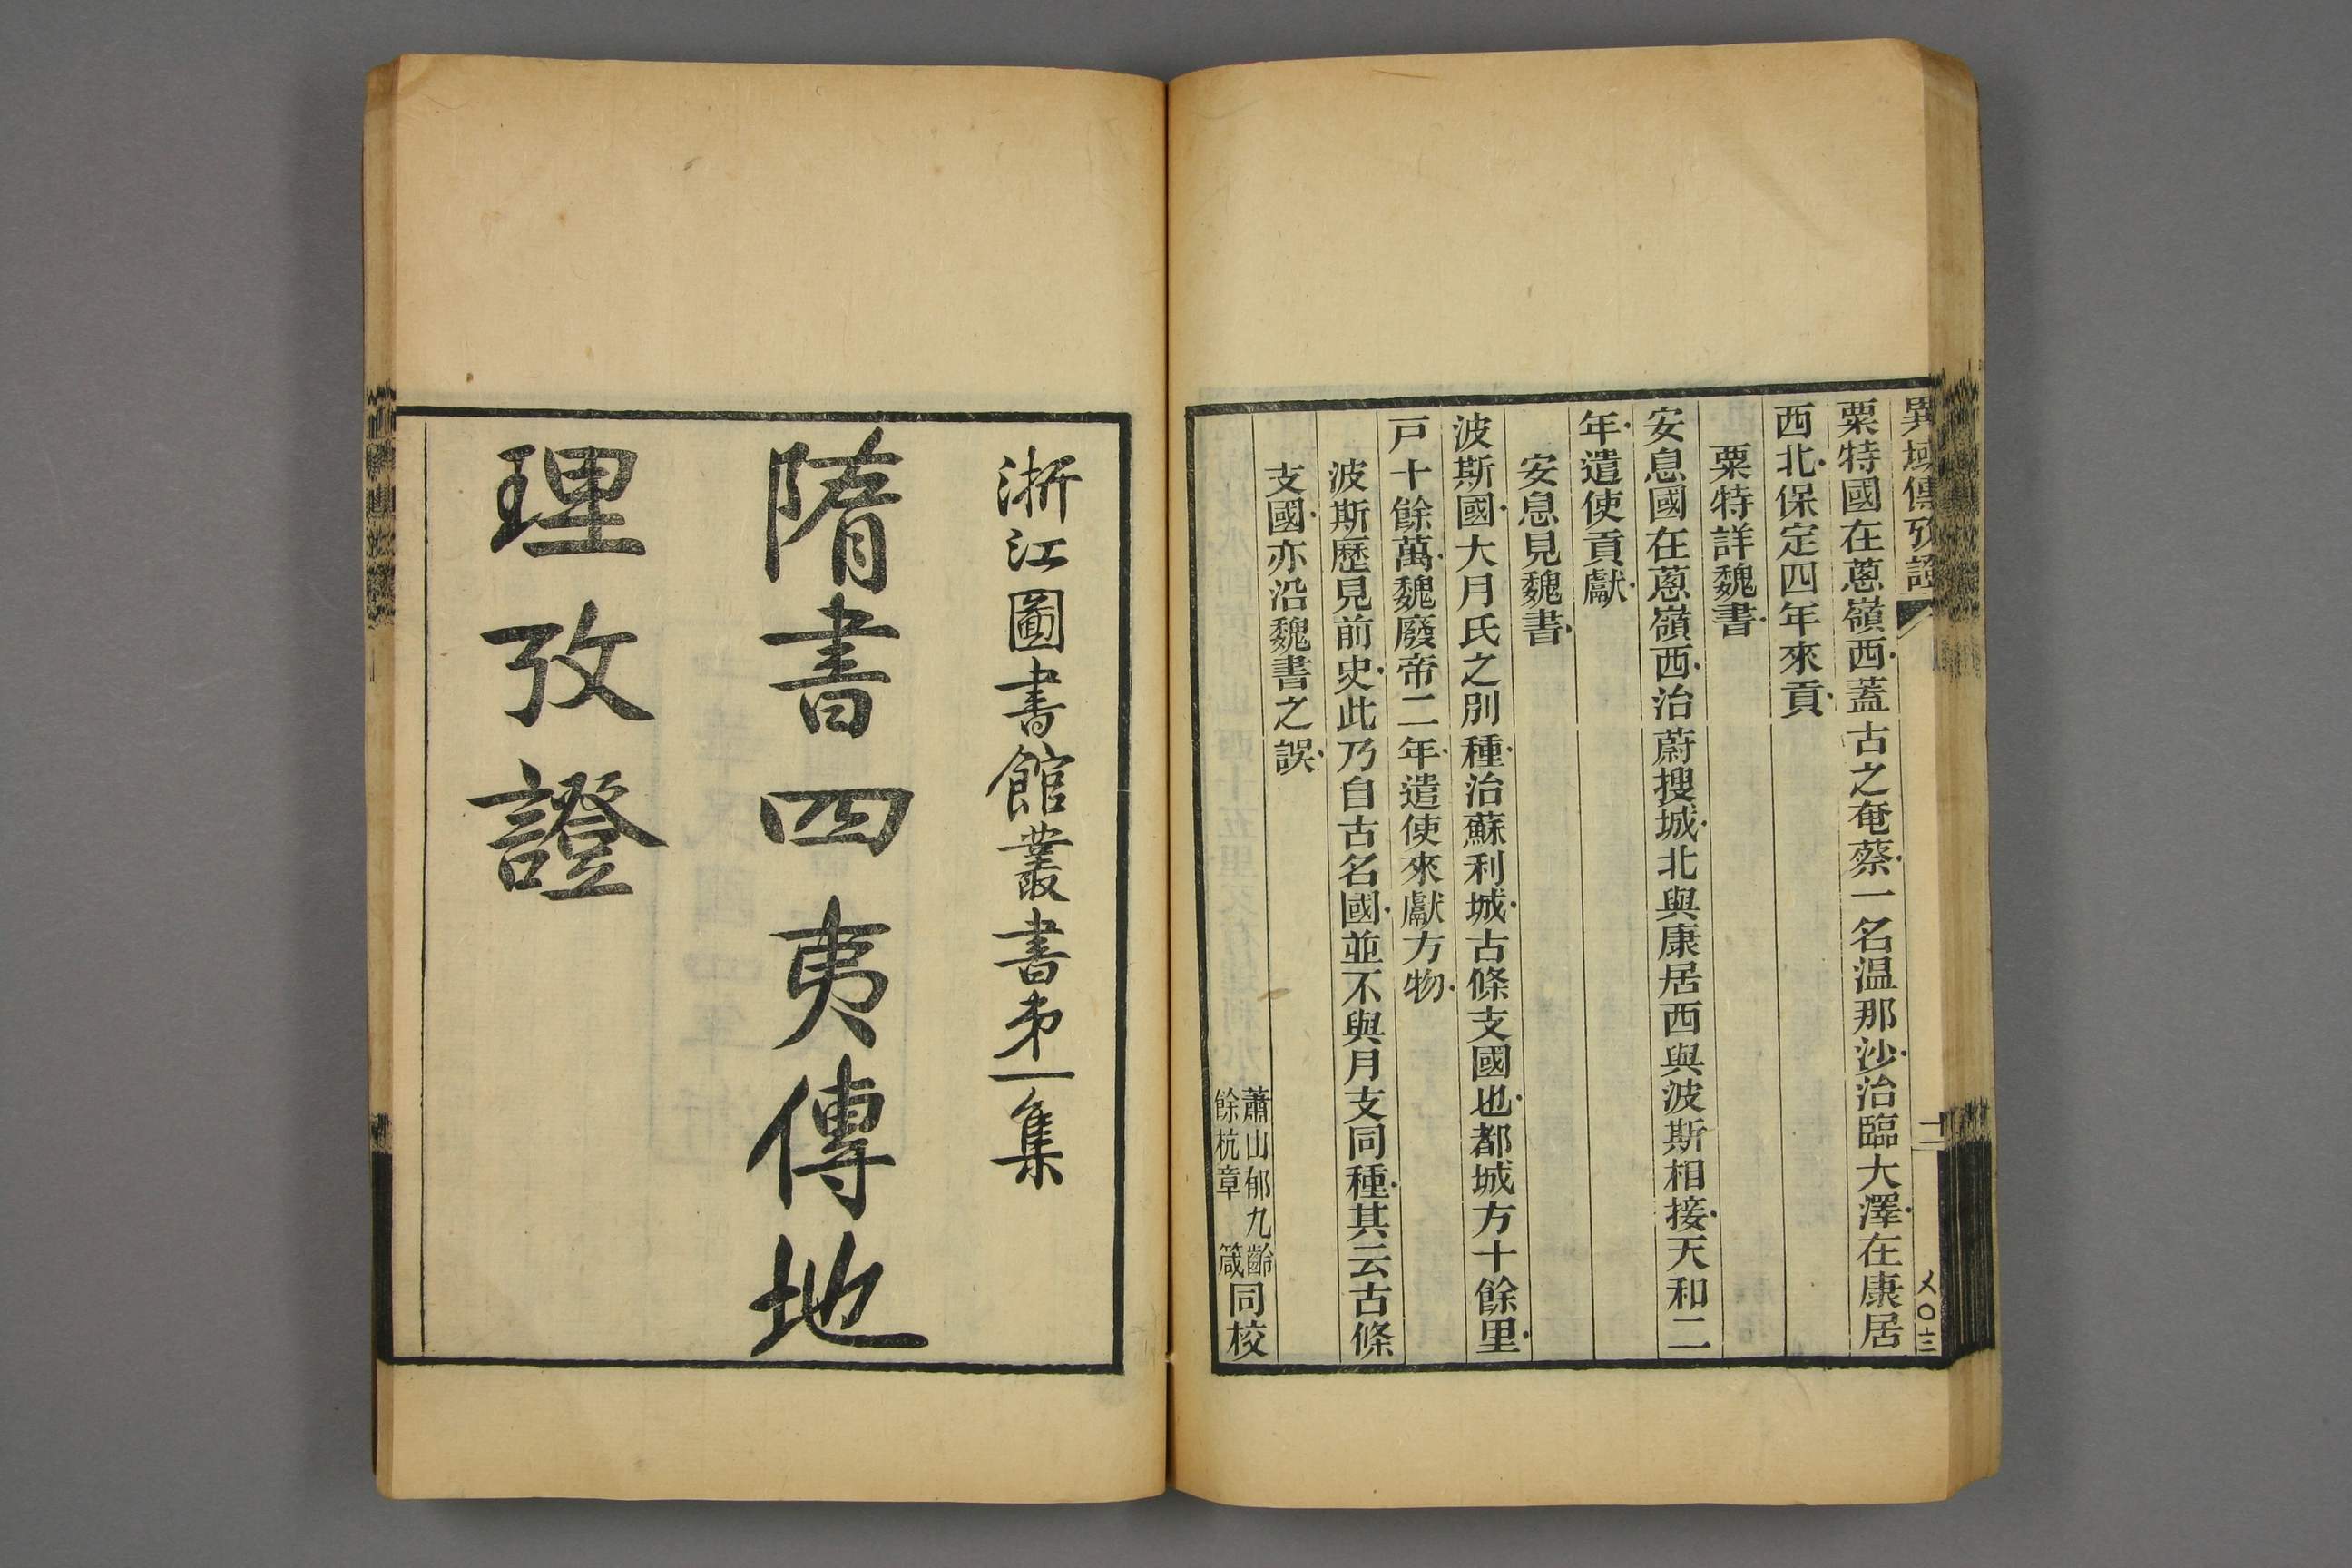 異域傳攷證
十二
粟特國在蔥嶺西蓋古之奄蔡一名温那沙治臨大澤在康居
西北保定四年來貢
粟特詳魏書
安息國在蔥嶺西治蔚搜城北與康居西與波斯相接天和二
年遣使貢獻
安息見魏書
波斯國大月氏之別種治蘇利城古條支國也都城方十餘里
戸十餘萬魏廢帝二年遣使來獻方物
波斯歷見前史此乃自古名國並不與月支同種其云古條
支國亦沿魏書之誤
蕭山郁九齡
餘杭章箴
同校
浙江圖書館叢書弟一集
隋書四夷傳地
理攷證